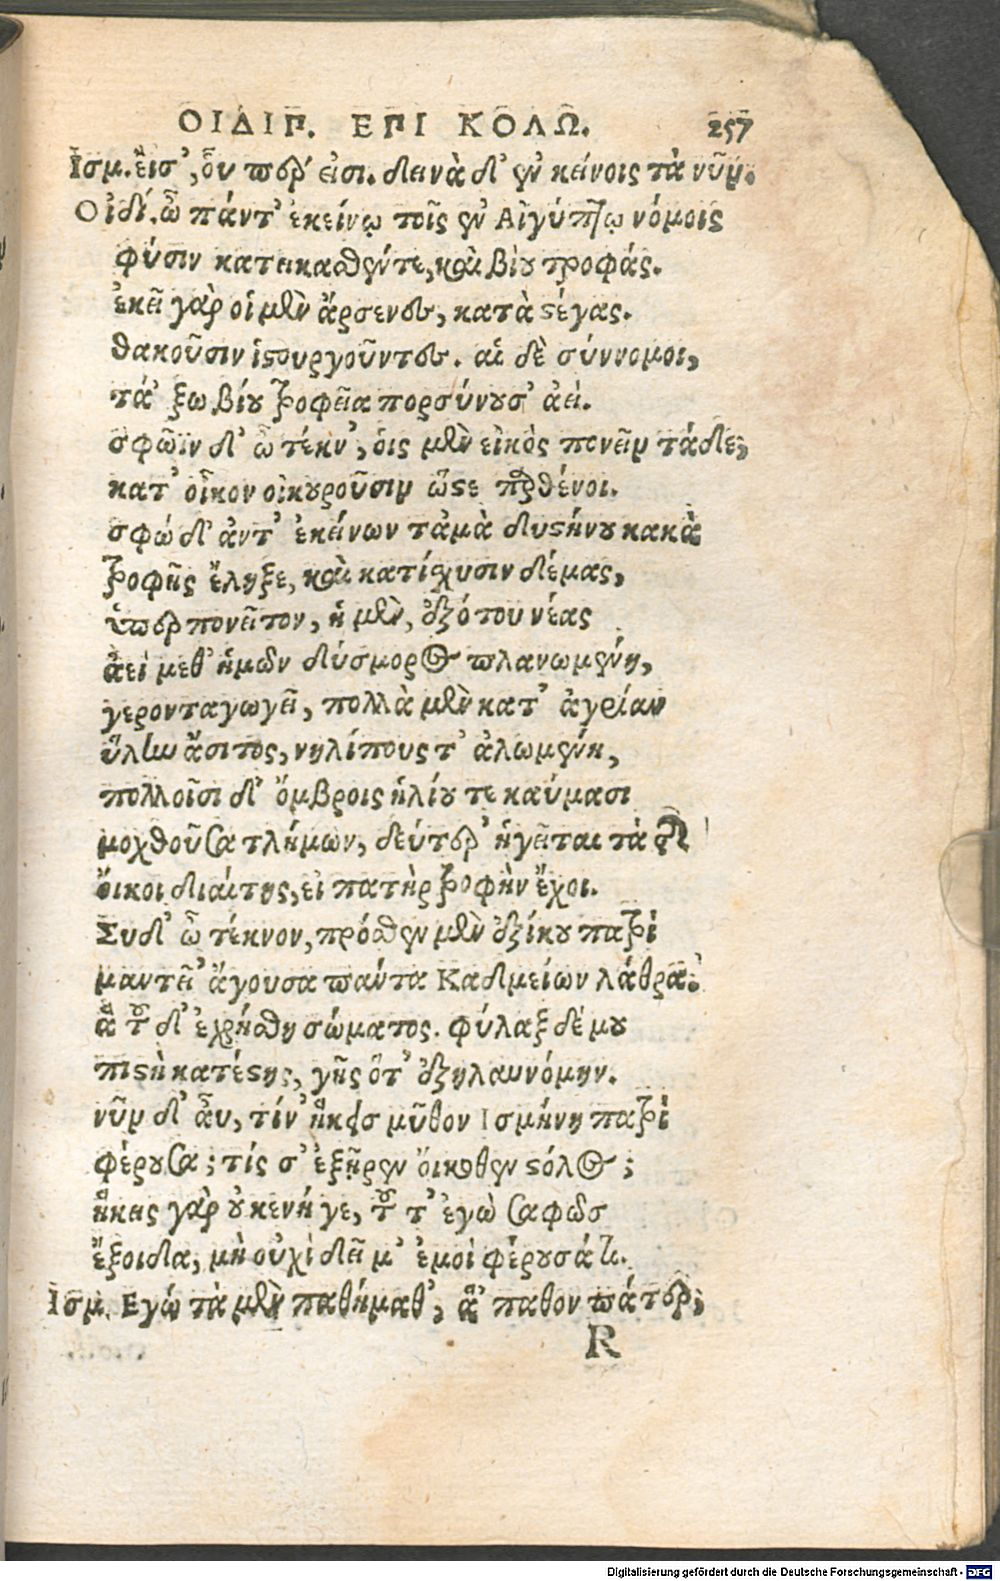 ΟΙΔΙΠ. ΕΠΙ ΚΟΛΩ. 257
Ισμ. εἴσ', οὗ περ εἰσι. δεινὰ δ' ἐν κείνοις τὰ νῦν.
Οιδί. ὦ πάντ' ἐκείνῳ τοῖς ἐν Αἰγύπτῳ νόμοις
φύσιν κατεικασθέντε, καὶ βίου τροφάς.
ἐκεῖ γὰρ οἱ μὲν ἄρσενες, κατὰ στέγας.
θακοῦσιν ἱστουργοῦντες. αἱ δὲ σύννομοι,
τά' ξω βίου τροφεῖα πορσύνουσ' ἀεί.
σφῶϊν δ' ὦ τέκν', ὁις μὲν εἰκὸς πονεῖν τάδε,
κατ' οἶκον οἰκουροῦσιν ὥστε παρθένοι.
σφώ δ' ἀντ' ἐκείνων τἀμὰ δυστήνου κακὰ
τροφῆς ἔληξε, καὶ κατίσχυσιν δέμας,
ὑπερπονεῖτον, ἡ μὲν, ἐξότου νέας
ἀεὶ μεθ' ἡμῶν δύσμορος πλανωμένη,
γερονταγωγεῖ, πολλὰ μὲν κατ' ἀγρίαν
ὕλην ἄσιτος, νηλίπους τ' ἀλωμένη,
πολλοῖσι δ' ὄμβροις ἡλίου τε καύμασι
μοχθοῦσα τλήμων, δεύτερ' ἡγεῖται τὰ τῆς
ὄικοι διαίτης, εἰ πατὴρ τροφὴν ἔχοι.
Συδ' ὦ τέκνον, πρόσθεν μὲν ἐξίκου πατρὶ
μαντεῖ' ἄγουσα πάντα Καδμείων λάθρα.
ἃ τοῦ δ' ἐχρήσθη σώματος. φύλαξ δέ μου
πιστὴ κατέστης, γῆς ὅτ' ἐξηλαυνόμην.
νῦν δ' ἆυ, τίν' ἥκεις μῦθον Ισμήνη πατρὶ
φέρουσα; τίς σ' ἐξῆρεν ὄικοθεν στόλος;
ἥκεις γὰρ οὐ κενή γε, τοῦτ' ἐγὼ σαφῶς
ἔξοιδα, μὴ οὐχὶ δεῖμ' ἐμοὶ φέρουσά τι.
Ισμ. Εγώ τὰ μὲν παθήμαθ', ἃ' παθον πάτερ,
R
Digitalisierung gefördert durch die Deutsche Forschungsgemeinschaft - DFG